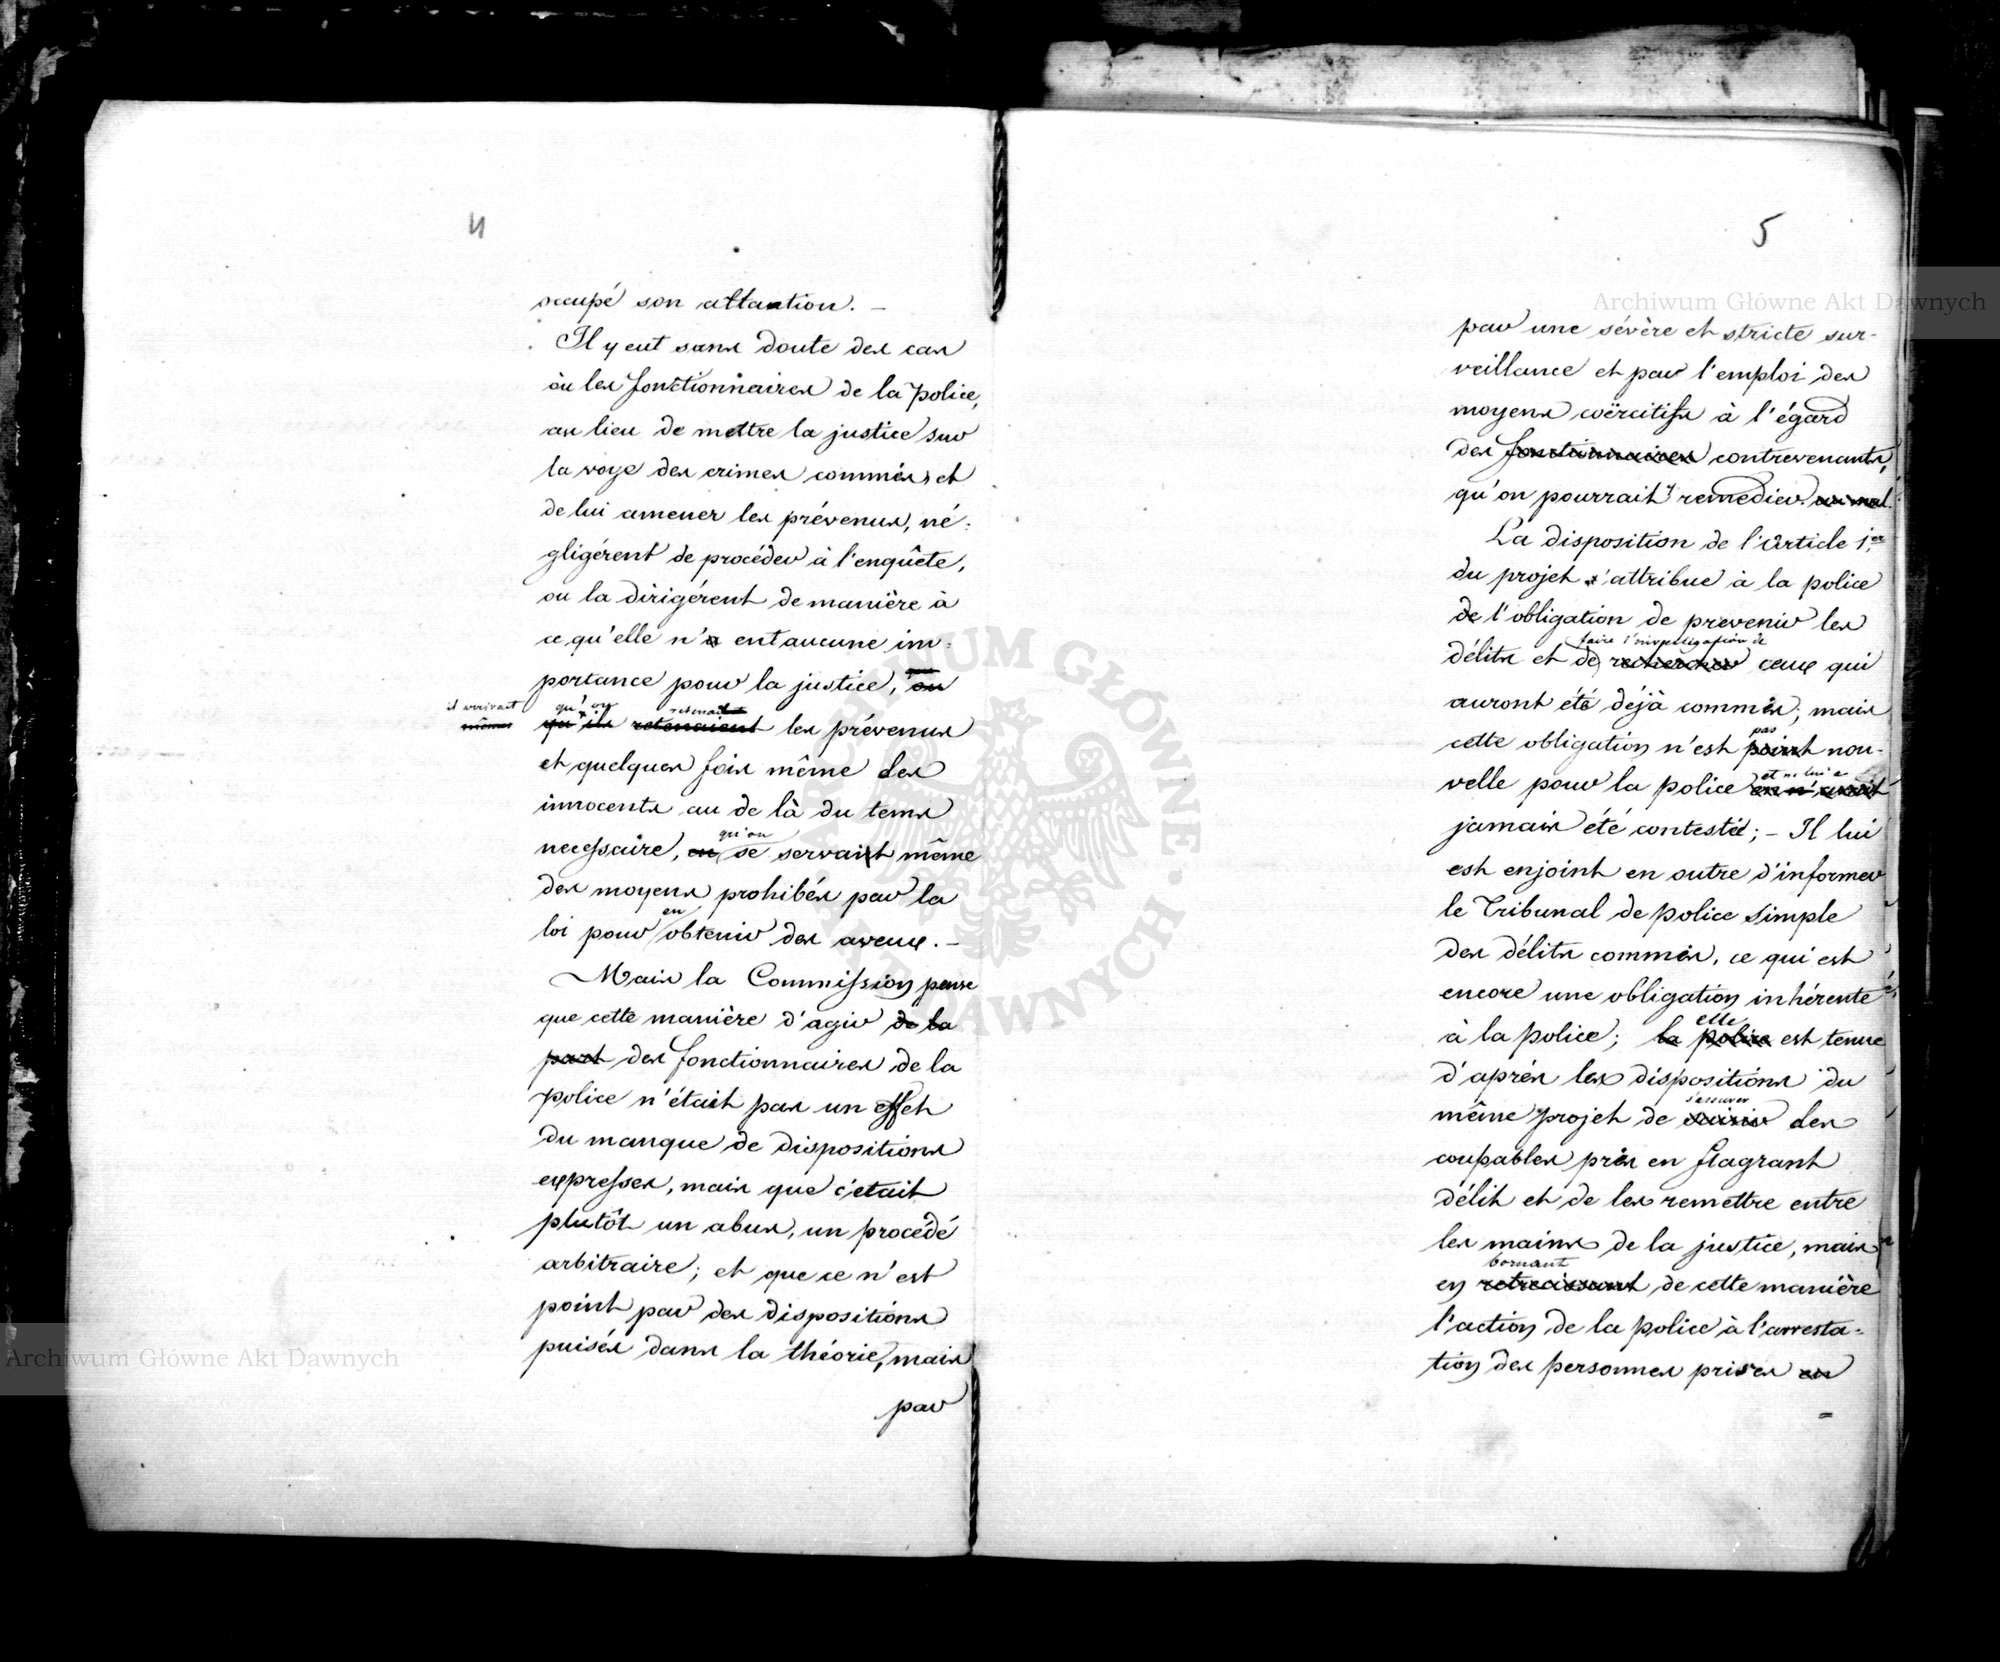 4
occupé son attention. –
Il y eut sans doute des cas
où les fonctionnaires de la police,
au lieu de mettre la justice sur
la voye des crimes commis, et
de lui amener les prévenus, né-
gligérent de procéder à l'enquête,
ou la dirigérent de manière à
ce qu'elle n'eut aucune im-
portance pour la justice, ou
il arrivait qu'on retenait
même qu'ils retenaient les prévenus
et quelques fois même des
innocents au de là du tems
qu'on
necessaire, se servait même
des moyens prohibés par la
en
loi pour obtenir des aveux. –
Mais la Commission pense
que cette manière d'agir de la
part des fonctionnaires de la
police n'était pas un effet
du manque de dispositions
expresses, mais que c'etait
plutôt un abus, un procédé
arbitraire; et que ce n'est
point par des dispositions
puisés dans la théorie, mais
par
5
par une sévère et stricte sur-
veillance et par l'emploi des
moyens coërcitifs à l'égard
des fonctionnaires contrevenants,
qu'on pourrait y remedier au mal.
La disposition de l'Article 1er
du projet attribue à la police
de l'obligation de prevenir les
faire l'investigation de
délits et de rechercher ceux qui
auront été déjà commis; mais
pas
cette obligation n'est point nou-
et ne lui a
velle pour la police
jamais été contesté; – Il lui
est enjoint en outre d'informer
le Tribunal de police simple
des délits commis, ce qui est
encore une obligation inhérente
elle
à la police; la police est tenue
d'après les dispositions du
s'assurer
même projet de saisir des
coupables pris en flagrant
délit et de les remettre entre
les mains de la justice, mais
bornant
en retrecissant de cette manière
l'action de la police à l'arresta-
tion des personnes prises en
Archiwum Główne Akt Dawnych
Archiwum Główne Akt Dawnych
ARCHIWUM GŁÓWNE AKT DAWNYCH